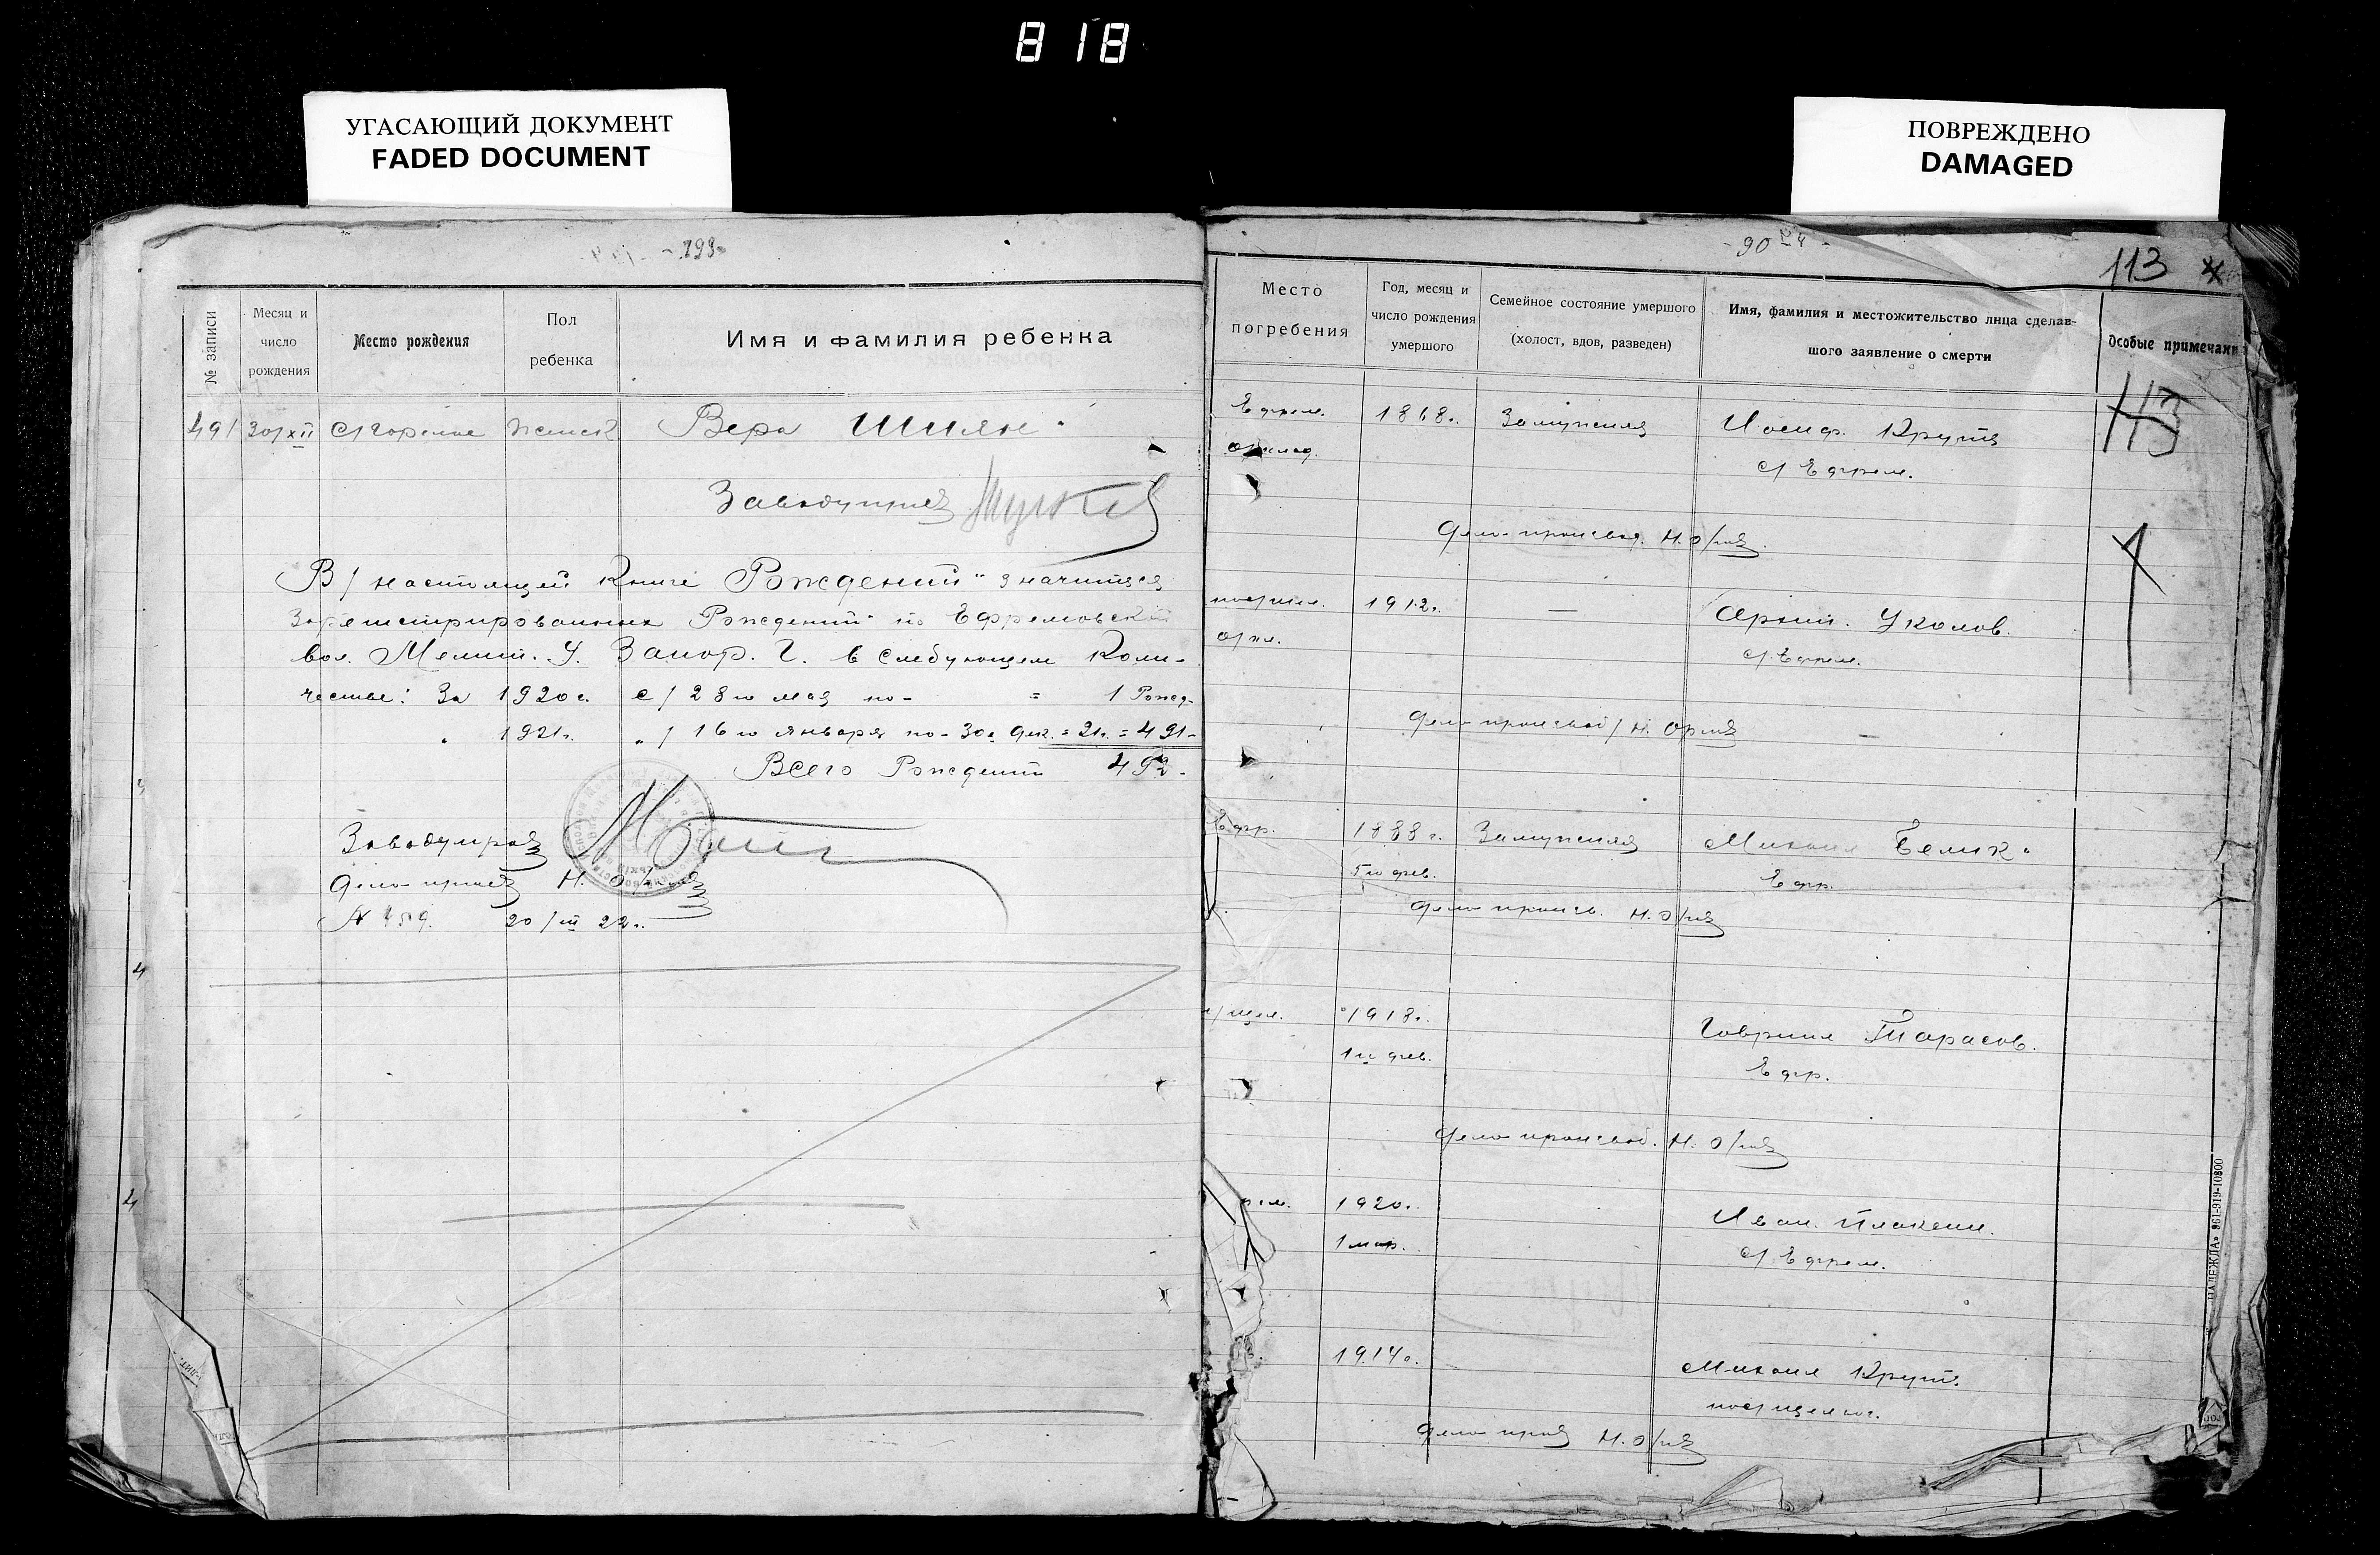 818
УГАСАЮЩИЙ ДОКУМЕНТ
FADED DOCUMENT
ПОВРЕЖДЕНО
DAMAGED
199
№ записи
Месяц и число рождения
Место рождения
Пол ребенка
Имя и фамилия ребенка
491 30/XII Женск Вера Шиян
Заведующий
В/ настоящей Книге "Рождений" значится
Зарегистрированных Рождений по Ефремовской
вол. Мелит. У. Запор. Г. в следующем Коли-
честве: За 1920 г. с/ 28го мая по - = 1 Рожд.
" 1921 г. "/ 16го января по - 30 Дек. = 21г. = 491 -
Всего Рождений 492 -
Заведующий
Дело-произ Н.
20/III 22 г.
- 90 -
113
Место погребения
Год, месяц и число рождения умершего
Семейное состояние умершого
(холост, вдов, разведен)
Имя, фамилия и местожительство лица сделав-
шого заявление о смерти
Особые примечани
Ефрем. 1868 г. Замужняя Иосиф Крутъ
с/ Ефрем.
113
Дело-производ. Н.
1912 г. — Архип. Уколов.
с/ Ефрем.
Дело-производ/ Н.
Ефр. 1888 г. Замужняя Михаил Белик
5го фев. Ефр.
Дело-произв. Н.
1918 г. Гавриил Тарасов.
1го фев. Ефр.
Дело-производ. Н.
1920 г. Иван
1 мар. с/ Ефрем.
1914 г. Михаил Крут.
Дело-произ Н.
НАДЕЖДА» 961-919-10800